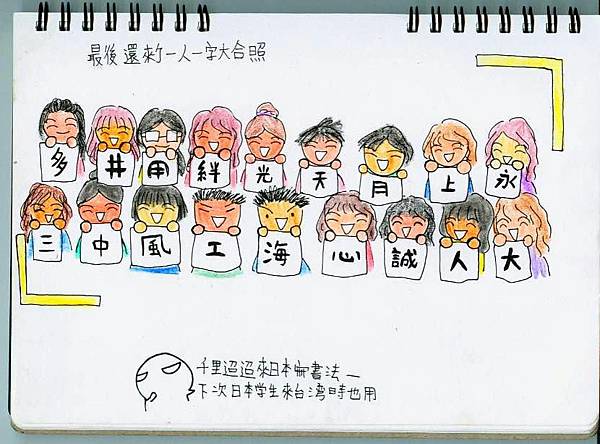 最後還來了一人一字大合照
多 井 用 絆 光 天 月 上 永
三 中 風 工 海 心 誠 人 大
千里迢迢來日本書法一
下次日本学生來台湾時也用